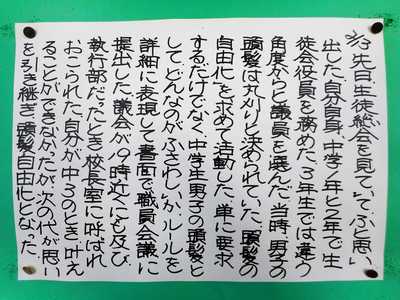 2/3先日、生徒総会を見ていて、ふと思い
出した。自分自身、中学1年と2年で生
徒会役員を務めた。3年生では違う
角度からと議員を選んだ。当時、男子の
頭髪は丸刈りと決められていた。頭髪の
自由化を求めて活動した。単に要求
するだけでなく、中学生男子の頭髪と
してどんなのがふさわしいか、ルールを
詳細に表現して書面で職員会議に
提出した。議会が19時近くにも及び、
執行部だったとき校長室に呼ばれ
おこられた。自分が中3のとき、叶え
ることができなかたが、次の代が思い
を引き継ぎ、頭髪自由化となった。